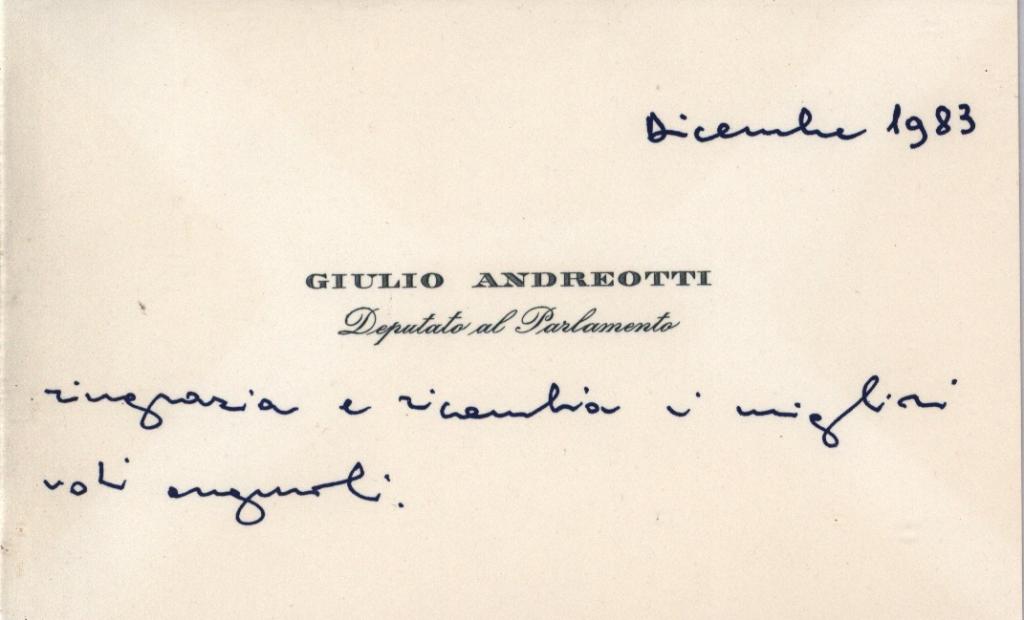 Dicembre 1983
GIULIO ANDREOTTI
Deputato al Parlamento
ringrazia e ricambia i migliori
voti augurali.